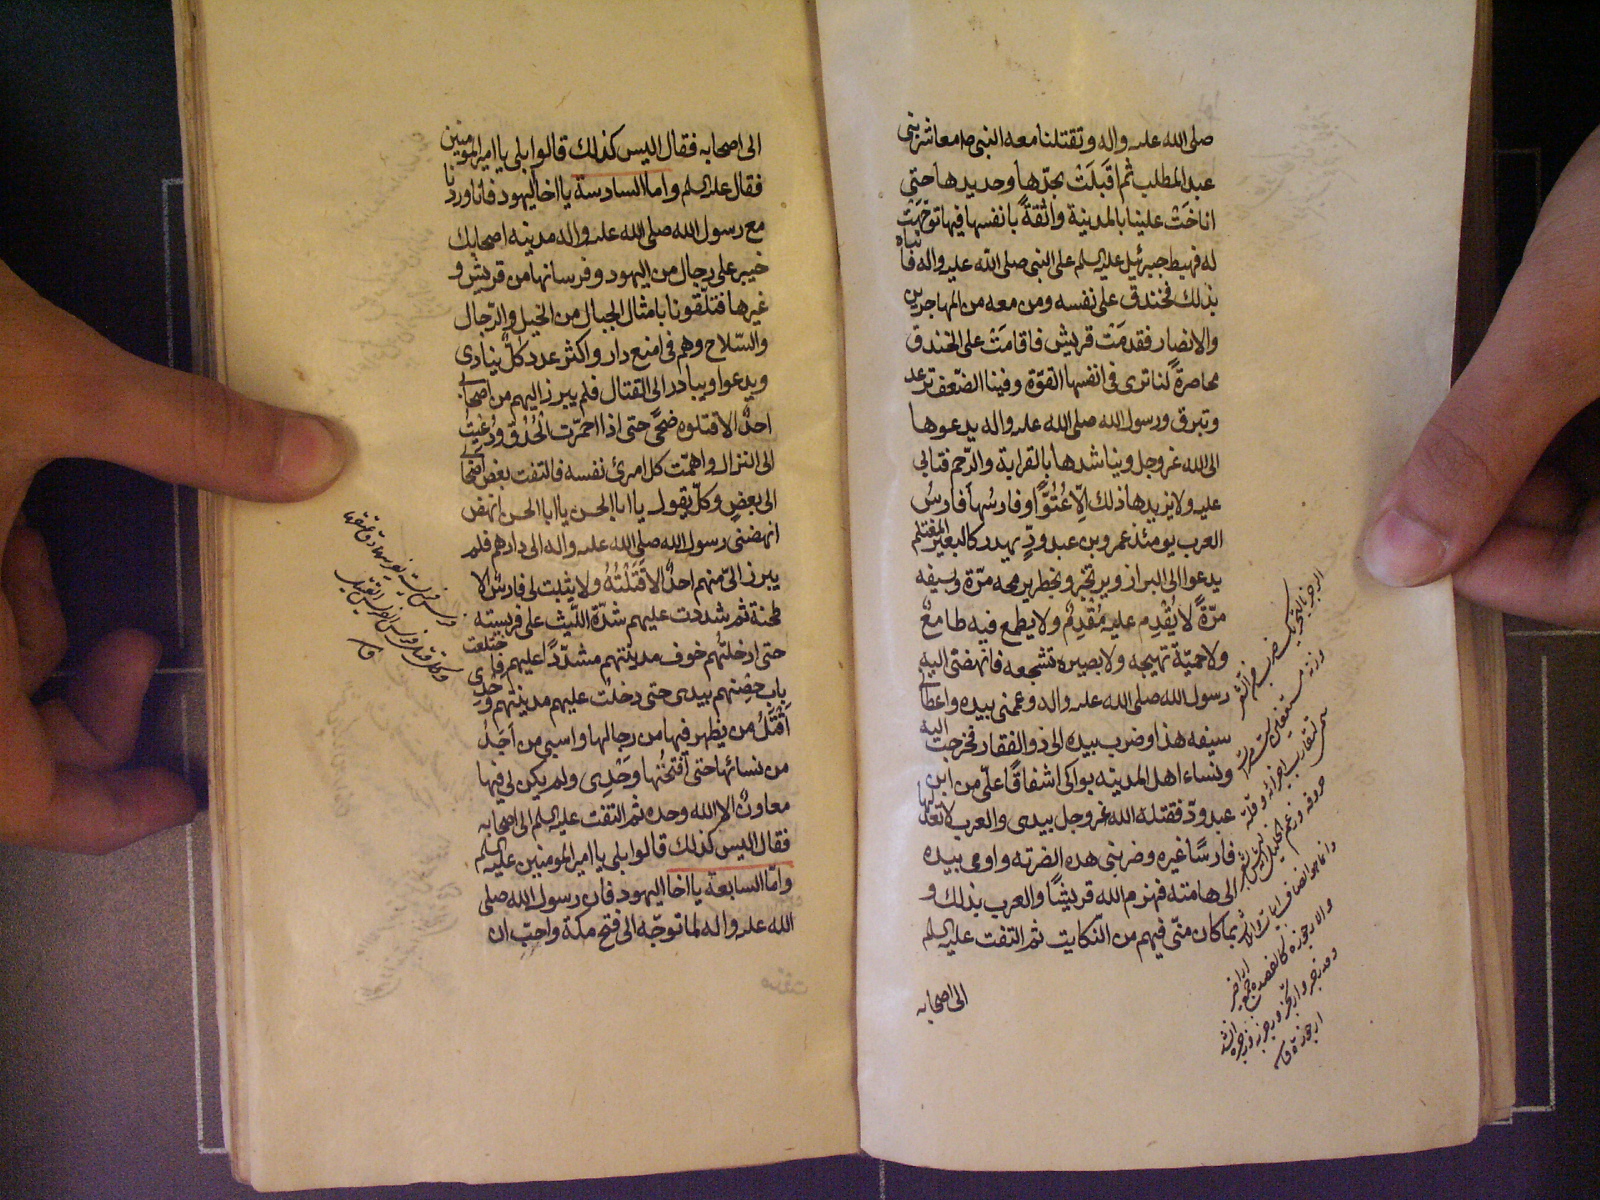 صلى الله عليه واله وتقتلنا معه النبي ص معاشر بني
عبد المطلب ثم اقبلت بجدّها وحديدها حتى
اناخت علينا بالمدينة واثقةً بانفسها فيما توجّهت
له فهبط جبرئيل عليه السلم على النبي صلى الله عليه واله فانباه
بذلك فخندق على نفسه ومن معه من المهاجرين
والانصار فقدمت قريش فاقامت على الخندق
محاصرةً لنا ترى في انفسها القوّة وفينا الضّعف ترعد
وتبرق ورسول الله صلى الله عليه واله يدعوها
الى الله عز وجل ويناشدها بالقرابة والرّحم فتابى
عليه ولا يزيدها ذلك الّا عُتُوًّا وفارسُها فارسُ
العرب يومئذ عمرو بن عبد ودٍّ يهدر كالبعير المغتلم
يدعوا الى البراز ويرتجز ويخطر برمحه مرّة وبسيفه
مرّةً لا يُقدِم عليه مُقدِمٌ ولا يطمع فيه طامعٌ
ولا حميّة تهيجه ولا بصيرة تشجعه فانهضنى اليه
رسول الله صلى الله عليه واله وعممنى بيده واعطانى
سيفه هذا وضرب بيده الى ذو الفقار فخرجت اليه
ونساء اهل المدينه بواكى اشفاقًا علىّ من ابن
عبد ودّ فقتله الله عز وجل بيدى والعرب لا تعدّ لها
فارسًا غيره وضربنى هذه الضربة واومى بيده
الى هامته فهزم الله قريشًا والعرب بذلك و
بما كان منّى فيهم من النّكايت ثم التفت عليه السلم
الى اصحابه
الى اصحابه فقال اليس كذلك قالوا بلى يا امير المومنين
فقال عليه السلم واما السادسة يا اخا اليهود فانا وردنا
مع رسول الله صلى الله عليه واله مدينه اصحابك
خيبر على رجال من اليهود وفرسانها من قريش و
غيرها فتلقّونا بامثال الجبال من الخيل والرّجال
والسّلاح وهم فى امنع دار واكثر عدد كلّ ينادى
ويدعوا ويبادر الى القتال فلم يبرز اليهم من اصحابى
احدٌ الا قتلوه ضحًى حتى اذا احمرّت الحُدُق ودُعيتُ
الى النزال واهمّت كل امرئ نفسه فالتفت بعض اصحابى
الى بعضٍ وكلّ يقول يا ابا الحسن يا ابا الحسن انهض
انهضنى رسول الله صلى الله عليه واله الى دارهم فلم
يبرز الىّ منهم احدٌ الا قَتَلْتُهُ ولا يثبت لى فارسٌ الا
طحنة ثم شددت عليهم شدّة اللّيث على فريسته
حتى ادخلتُهم خوف مدينتهم مشدّدًا عليهم فاقتلعت
باب حِصنهم بيدى حتى دخلت عليهم مدينتهم وَحْدِى
أقتُلُ من يظهر فيها من رجالها واسبى من أجدُ
من نسائها حتى أفتحتُها وَحْدِى ولم يكن لى فيها
معاونٌ الا الله وحده ثم التفت عليه السلم الى اصحابه
فقال اليس كذلك قالوا بلى يا امير المومنين عليه السلم
وامّا السابعة يا اخا اليهود فان رسول الله صلى
الله عليه واله لما توجّه الى فتح مكة واحبّ ان